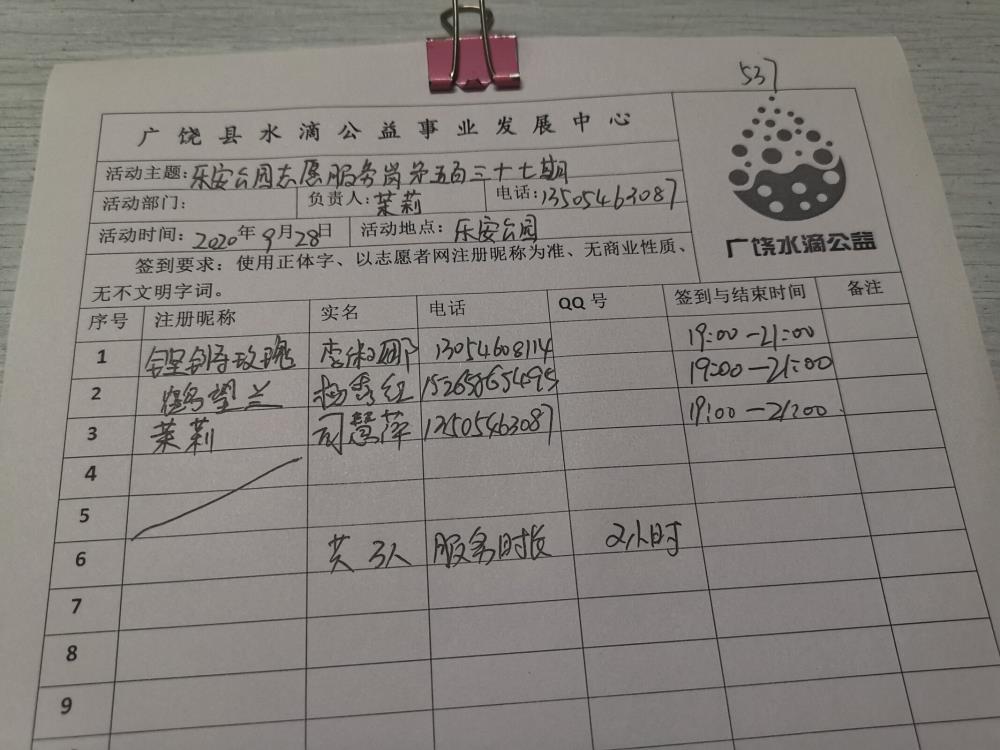 537
广饶县水滴公益事业发展中心
活动主题:乐安公园志愿服务岗第五百三十七期
活动部门: 负责人:茉莉 电话:13505463087
活动时间:2020年9月28日 活动地点:乐安公园
广饶水滴公益
签到要求:使用正体字、以志愿者网注册昵称为准、无商业性质、
无不文明字词。
序号 注册昵称 实名 电话 QQ号 签到与结束时间 备注
1 铿锵玫瑰 李淑娜 13054608114 19:00-21:00
2 鹤望兰 杨秀红 15265865495 19:00-21:00
3 茉莉 司慧萍 13505463087 19:00-21:00
4
5
6 共3人 服务时长 2小时
7
8
9